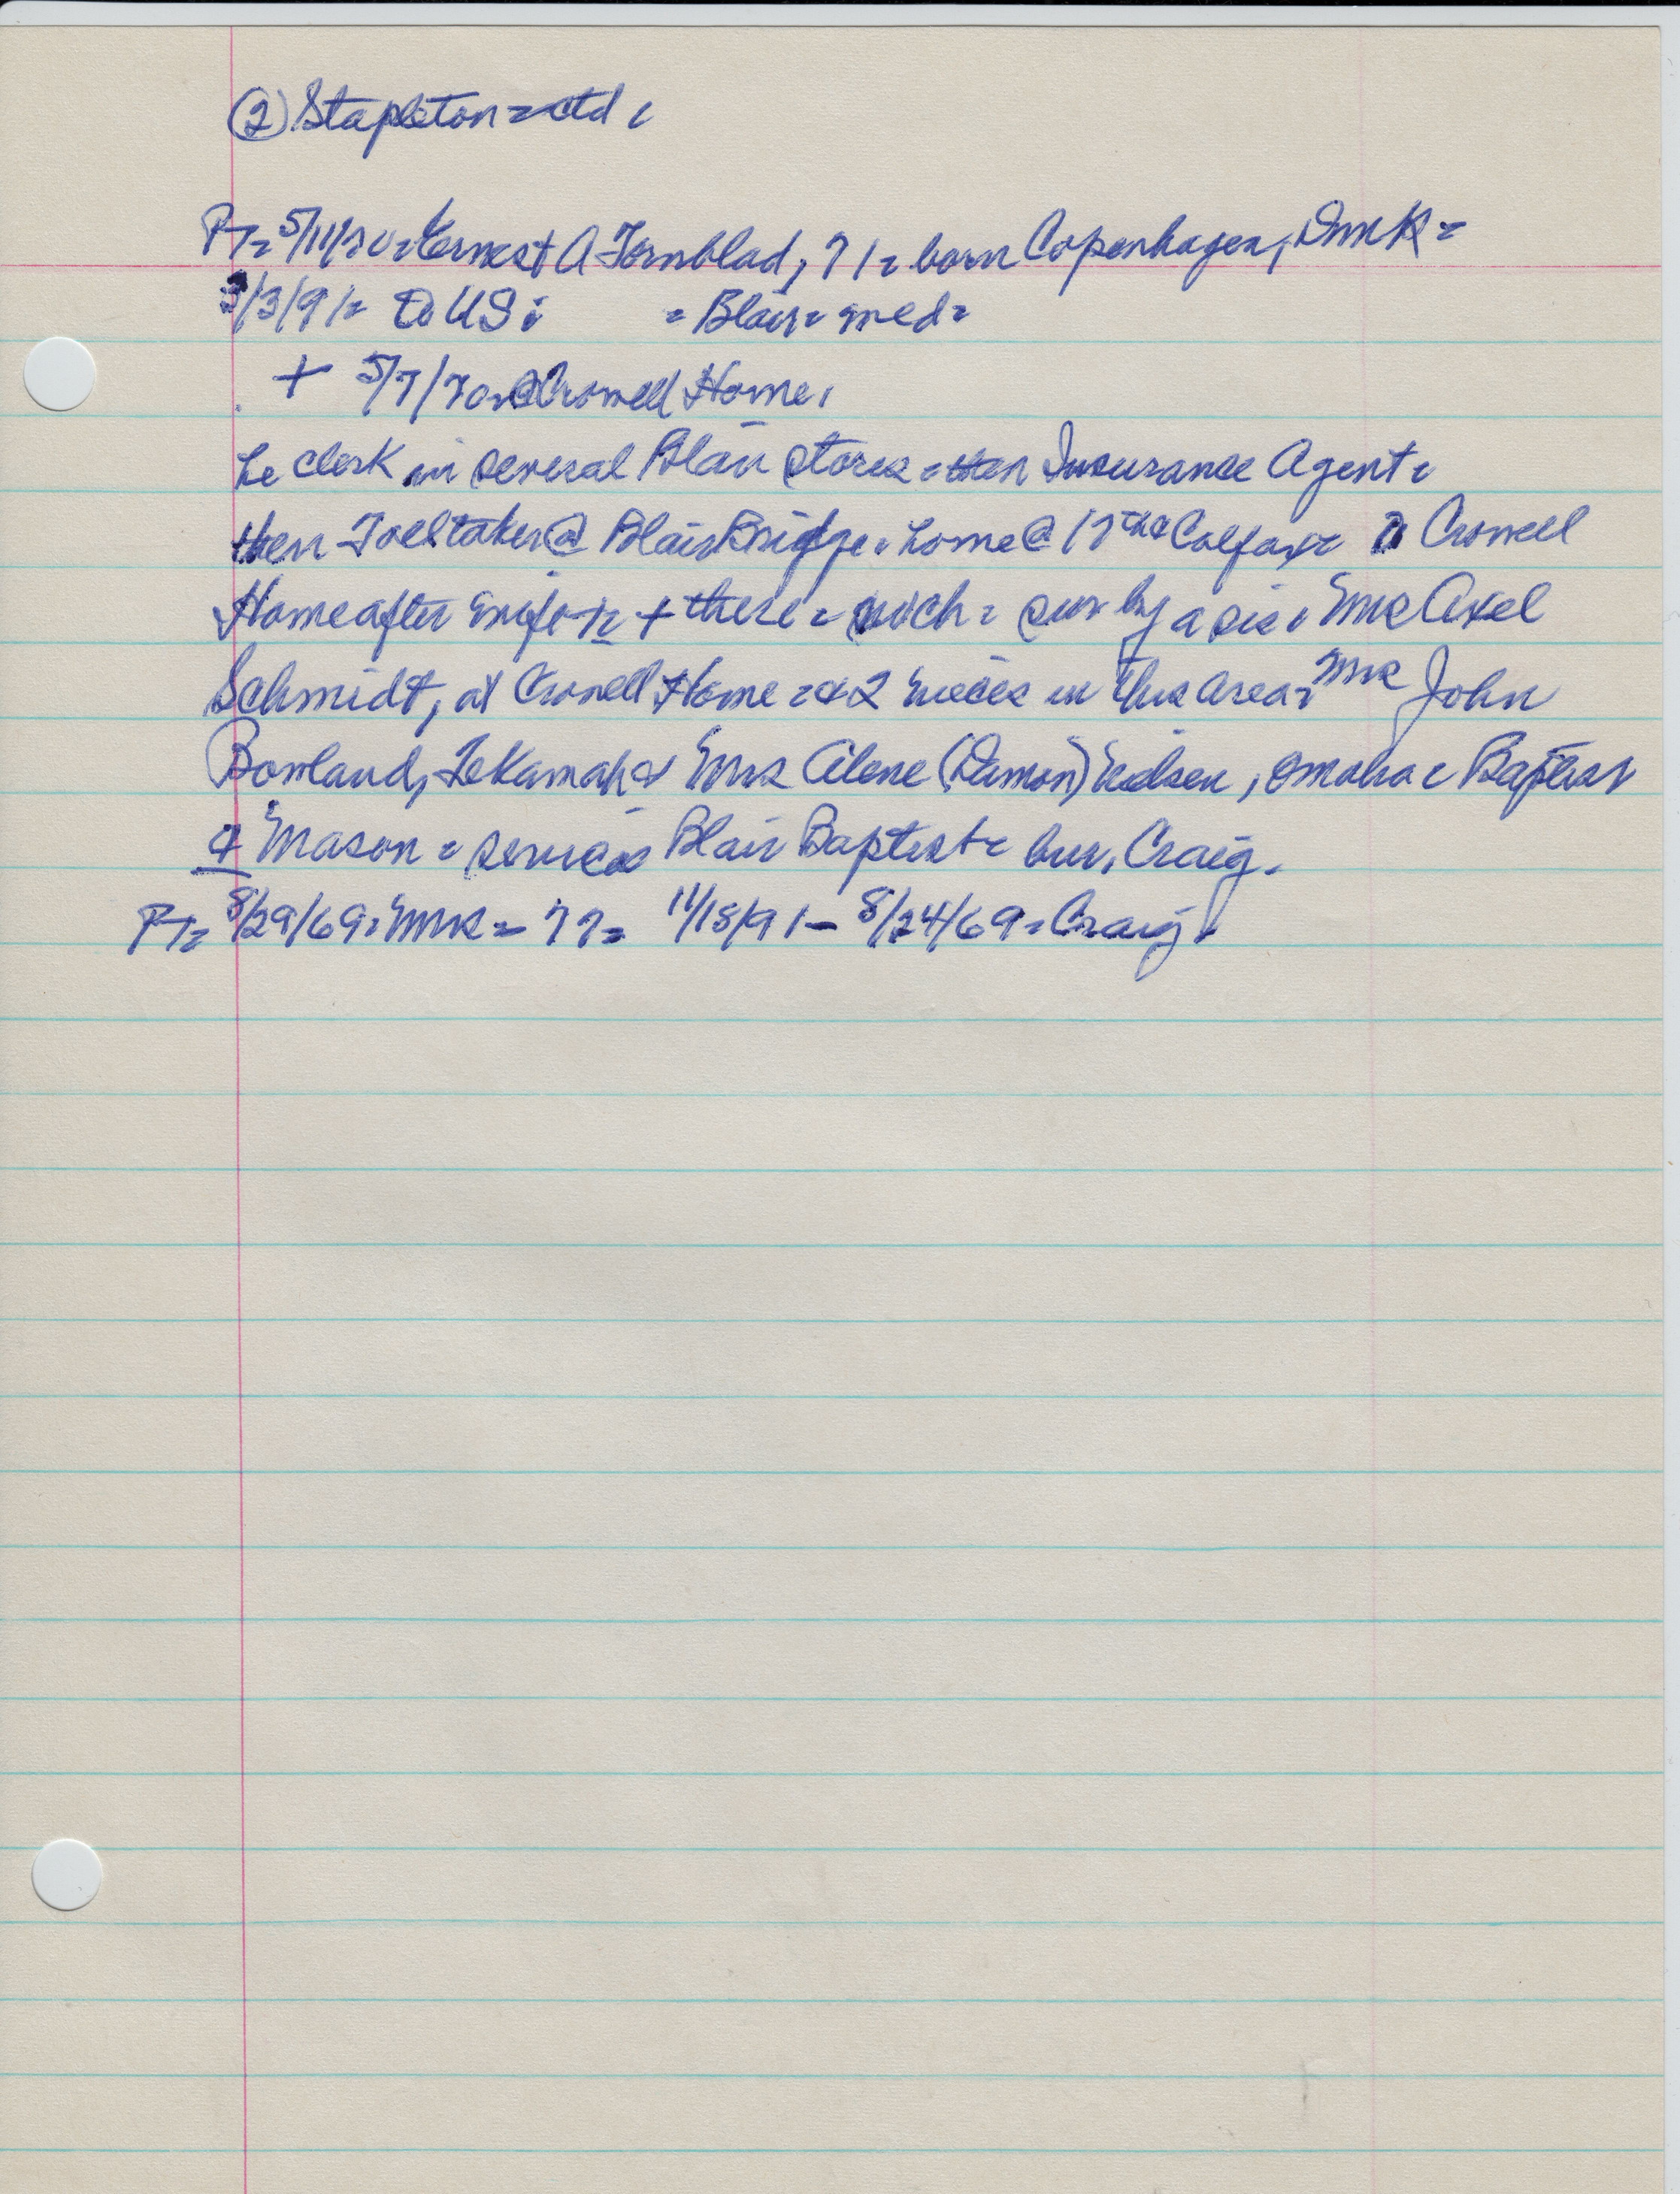 ② Stapleton = ctd =
PT= 5/11/70= Ernest A Tornblad, 71= born Copenhagen, Dmk =
3/3/91= to US: = Blair= med=
+ 5/7/70= @ Crowell Home.
he clerk in several Blair stores = then Insurance Agent=
then Tolltaker @ Blair Bridge. home @ 17th & Colfax= to Crowell
Home after wife += + there = noch = sur by a sis. Mrs Axel
Schmidt, at Crowell Home = & 2 nieces in this area. Mrs John
Bowland, Tekamah & Mrs Alene (Damon) Nielsen, Omaha = Baptist
& Mason = services Blair Baptist = bur. Craig.
PT= 8/29/69. Mrs = 77= 11/18/91 - 8/24/69= Craig.